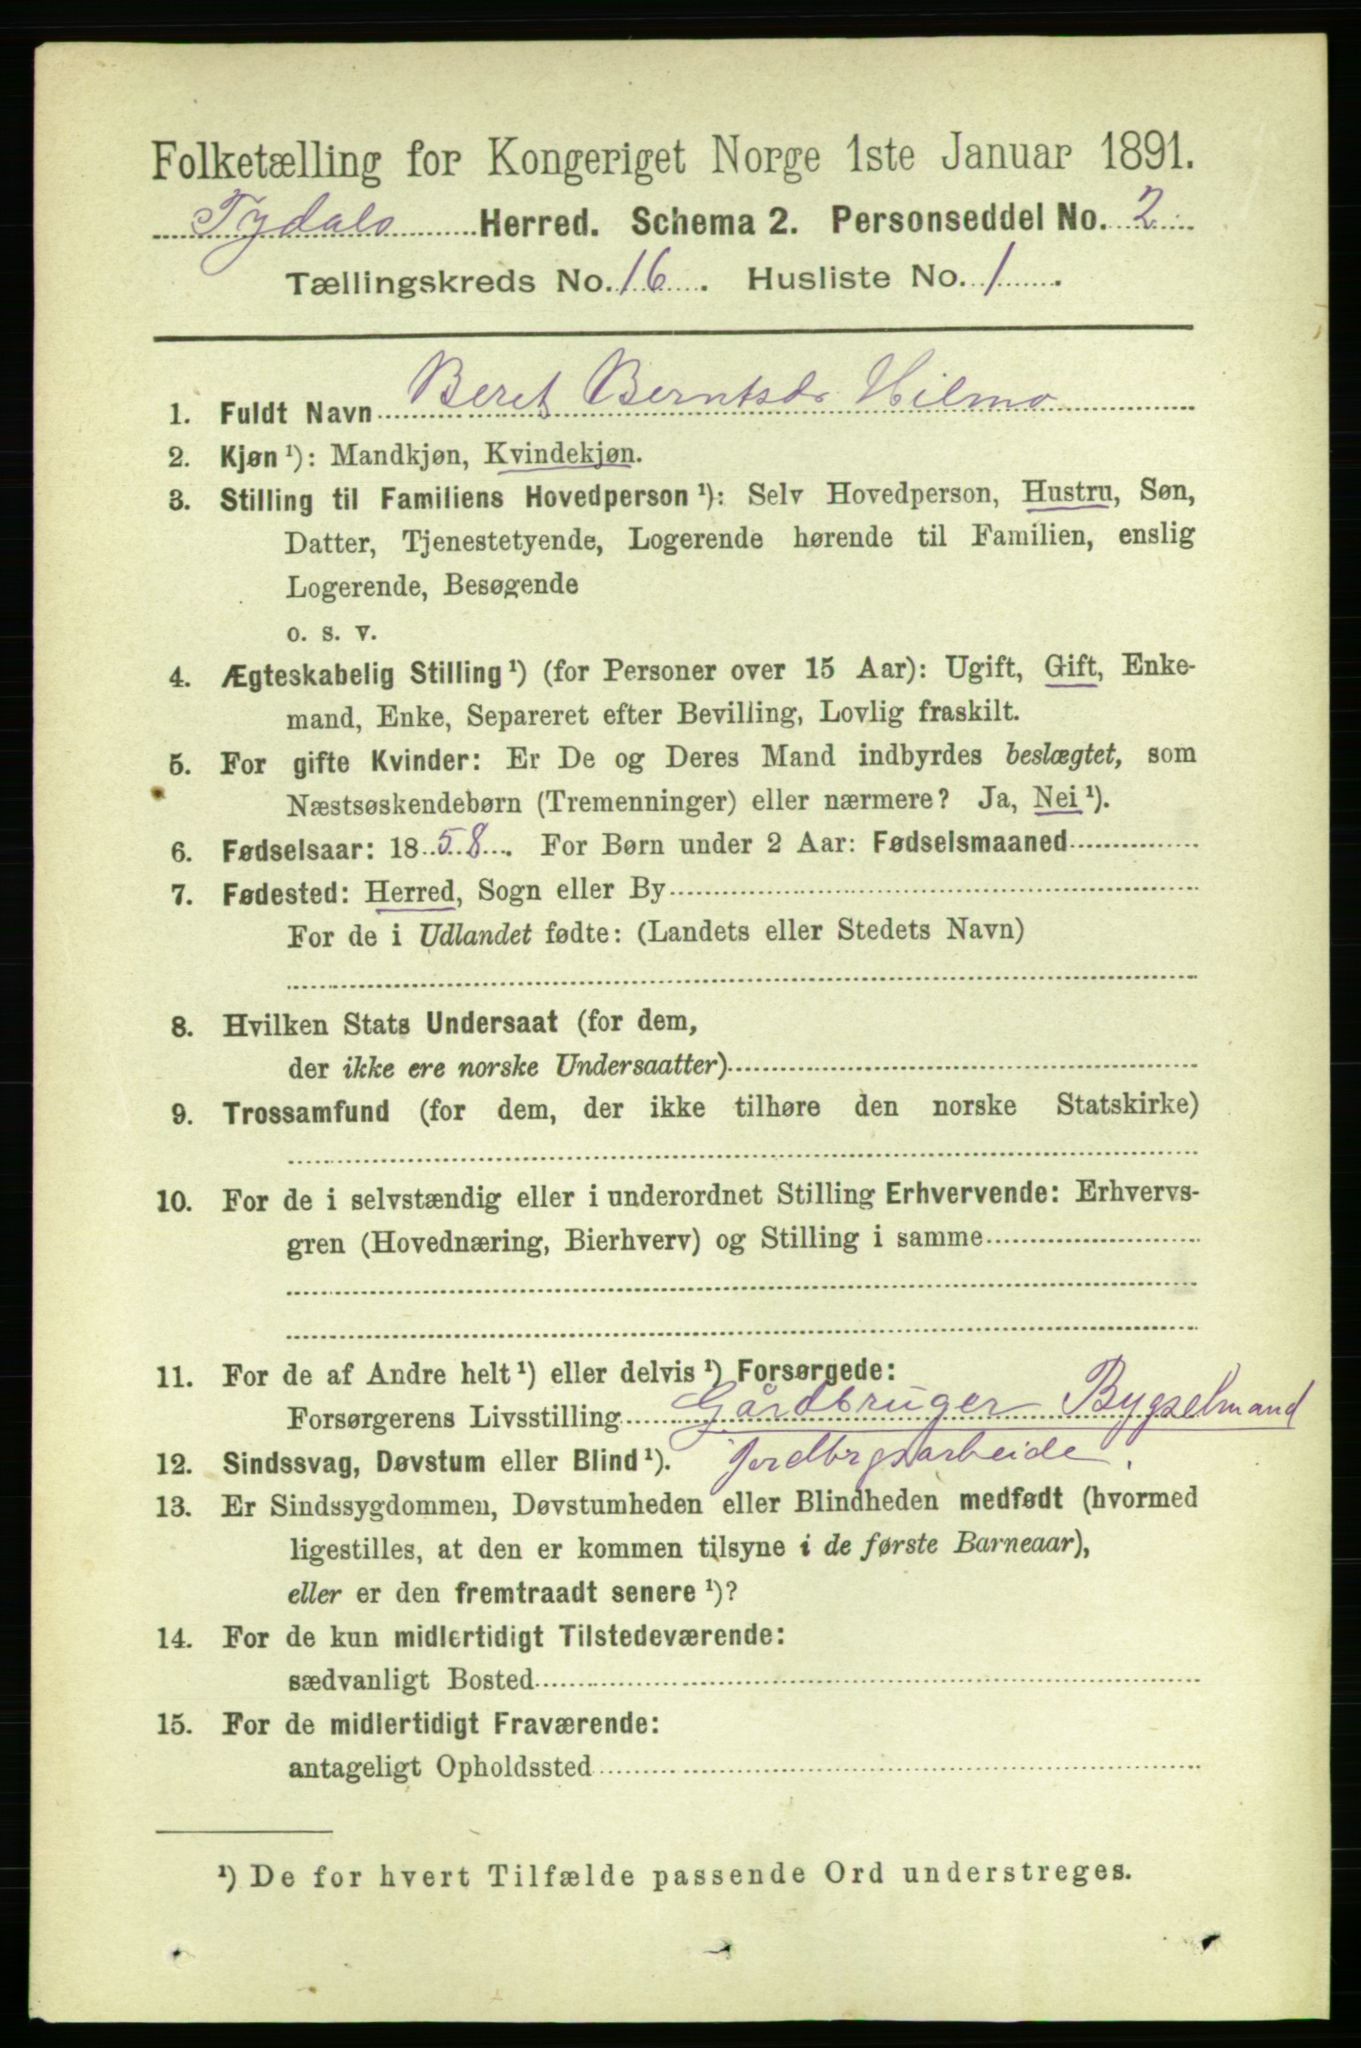 Folketælling for Kongeriget Norge 1ste Januar 1891.
Tydals Herred. Schema 2. Personseddel No. 2
Tællingskreds No. 16. Husliste No. 1.
1. Fuldt Navn Beret Berntsdr Hilmo
2. Kjøn¹): Mandkjøn, Kvindekjøn.
3. Stilling til Familiens Hovedperson¹): Selv Hovedperson, Hustru, Søn,
Datter, Tjenestetyende, Logerende hørende til Familien, enslig
Logerende, Besøgende
o. s. v.
4. Ægteskabelig Stilling¹) (for Personer over 15 Aar): Ugift, Gift, Enke-
mand, Enke, Separeret efter Bevilling, Lovlig fraskilt.
5. For gifte Kvinder: Er De og Deres Mand indbyrdes beslægtet, som
Næstsøskendebørn (Tremenninger) eller nærmere? Ja, Nei¹).
6. Fødselsaar: 1858. For Børn under 2 Aar: Fødselsmaaned
7. Fødested: Herred, Sogn eller By
For de i Udlandet fødte: (Landets eller Stedets Navn)
8. Hvilken Stats Undersaat (for dem,
der ikke ere norske Undersaatter)
9. Trossamfund (for dem, der ikke tilhøre den norske Statskirke)
10. For de i selvstændig eller i underordnet Stilling Erhvervende: Erhvervs-
gren (Hovednæring, Bierhverv) og Stilling i samme
11. For de af Andre helt¹) eller delvis¹) Forsørgede:
Forsørgerens Livsstilling Gårdbruger Bygselmand
12. Sindssvag, Døvstum eller Blind¹). Jordbrgsarbeide.
13. Er Sindssygdommen, Døvstumheden eller Blindheden medfødt (hvormed
ligestilles, at den er kommen tilsyne i de første Barneaar),
eller er den fremtraadt senere¹)?
14. For de kun midlertidigt Tilstedeværende:
sædvanligt Bosted
15. For de midlertidigt Fraværende:
antageligt Opholdssted
¹) De for hvert Tilfælde passende Ord understreges.